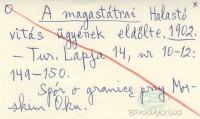 A magastátrai Halastó
vitás ügyének eldőlte. 1902.
– Tur. Lapja 14, nr 10-12:
149-150.
Spór o granicę przy Mor-
skim Oku.